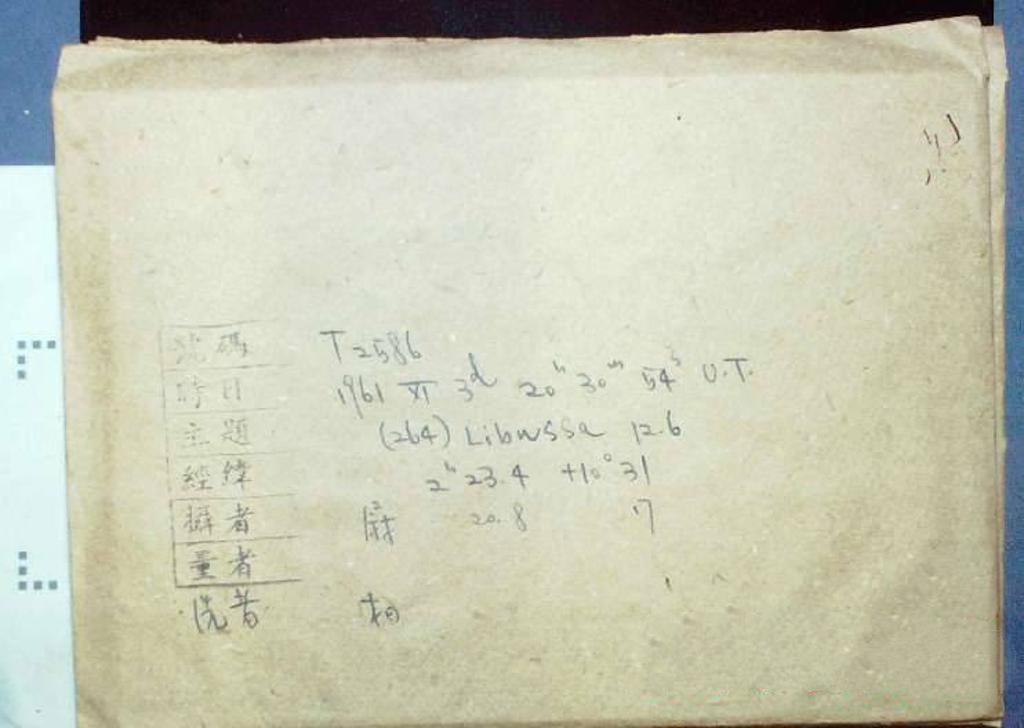 號碼 T2586
時日 1961 XI 3d 20h 30m 54s U.T.
主題 (264) Libussa 12.6
經緯 2h 23.4 +10° 31
攝者 20.8 17
量者
洗者